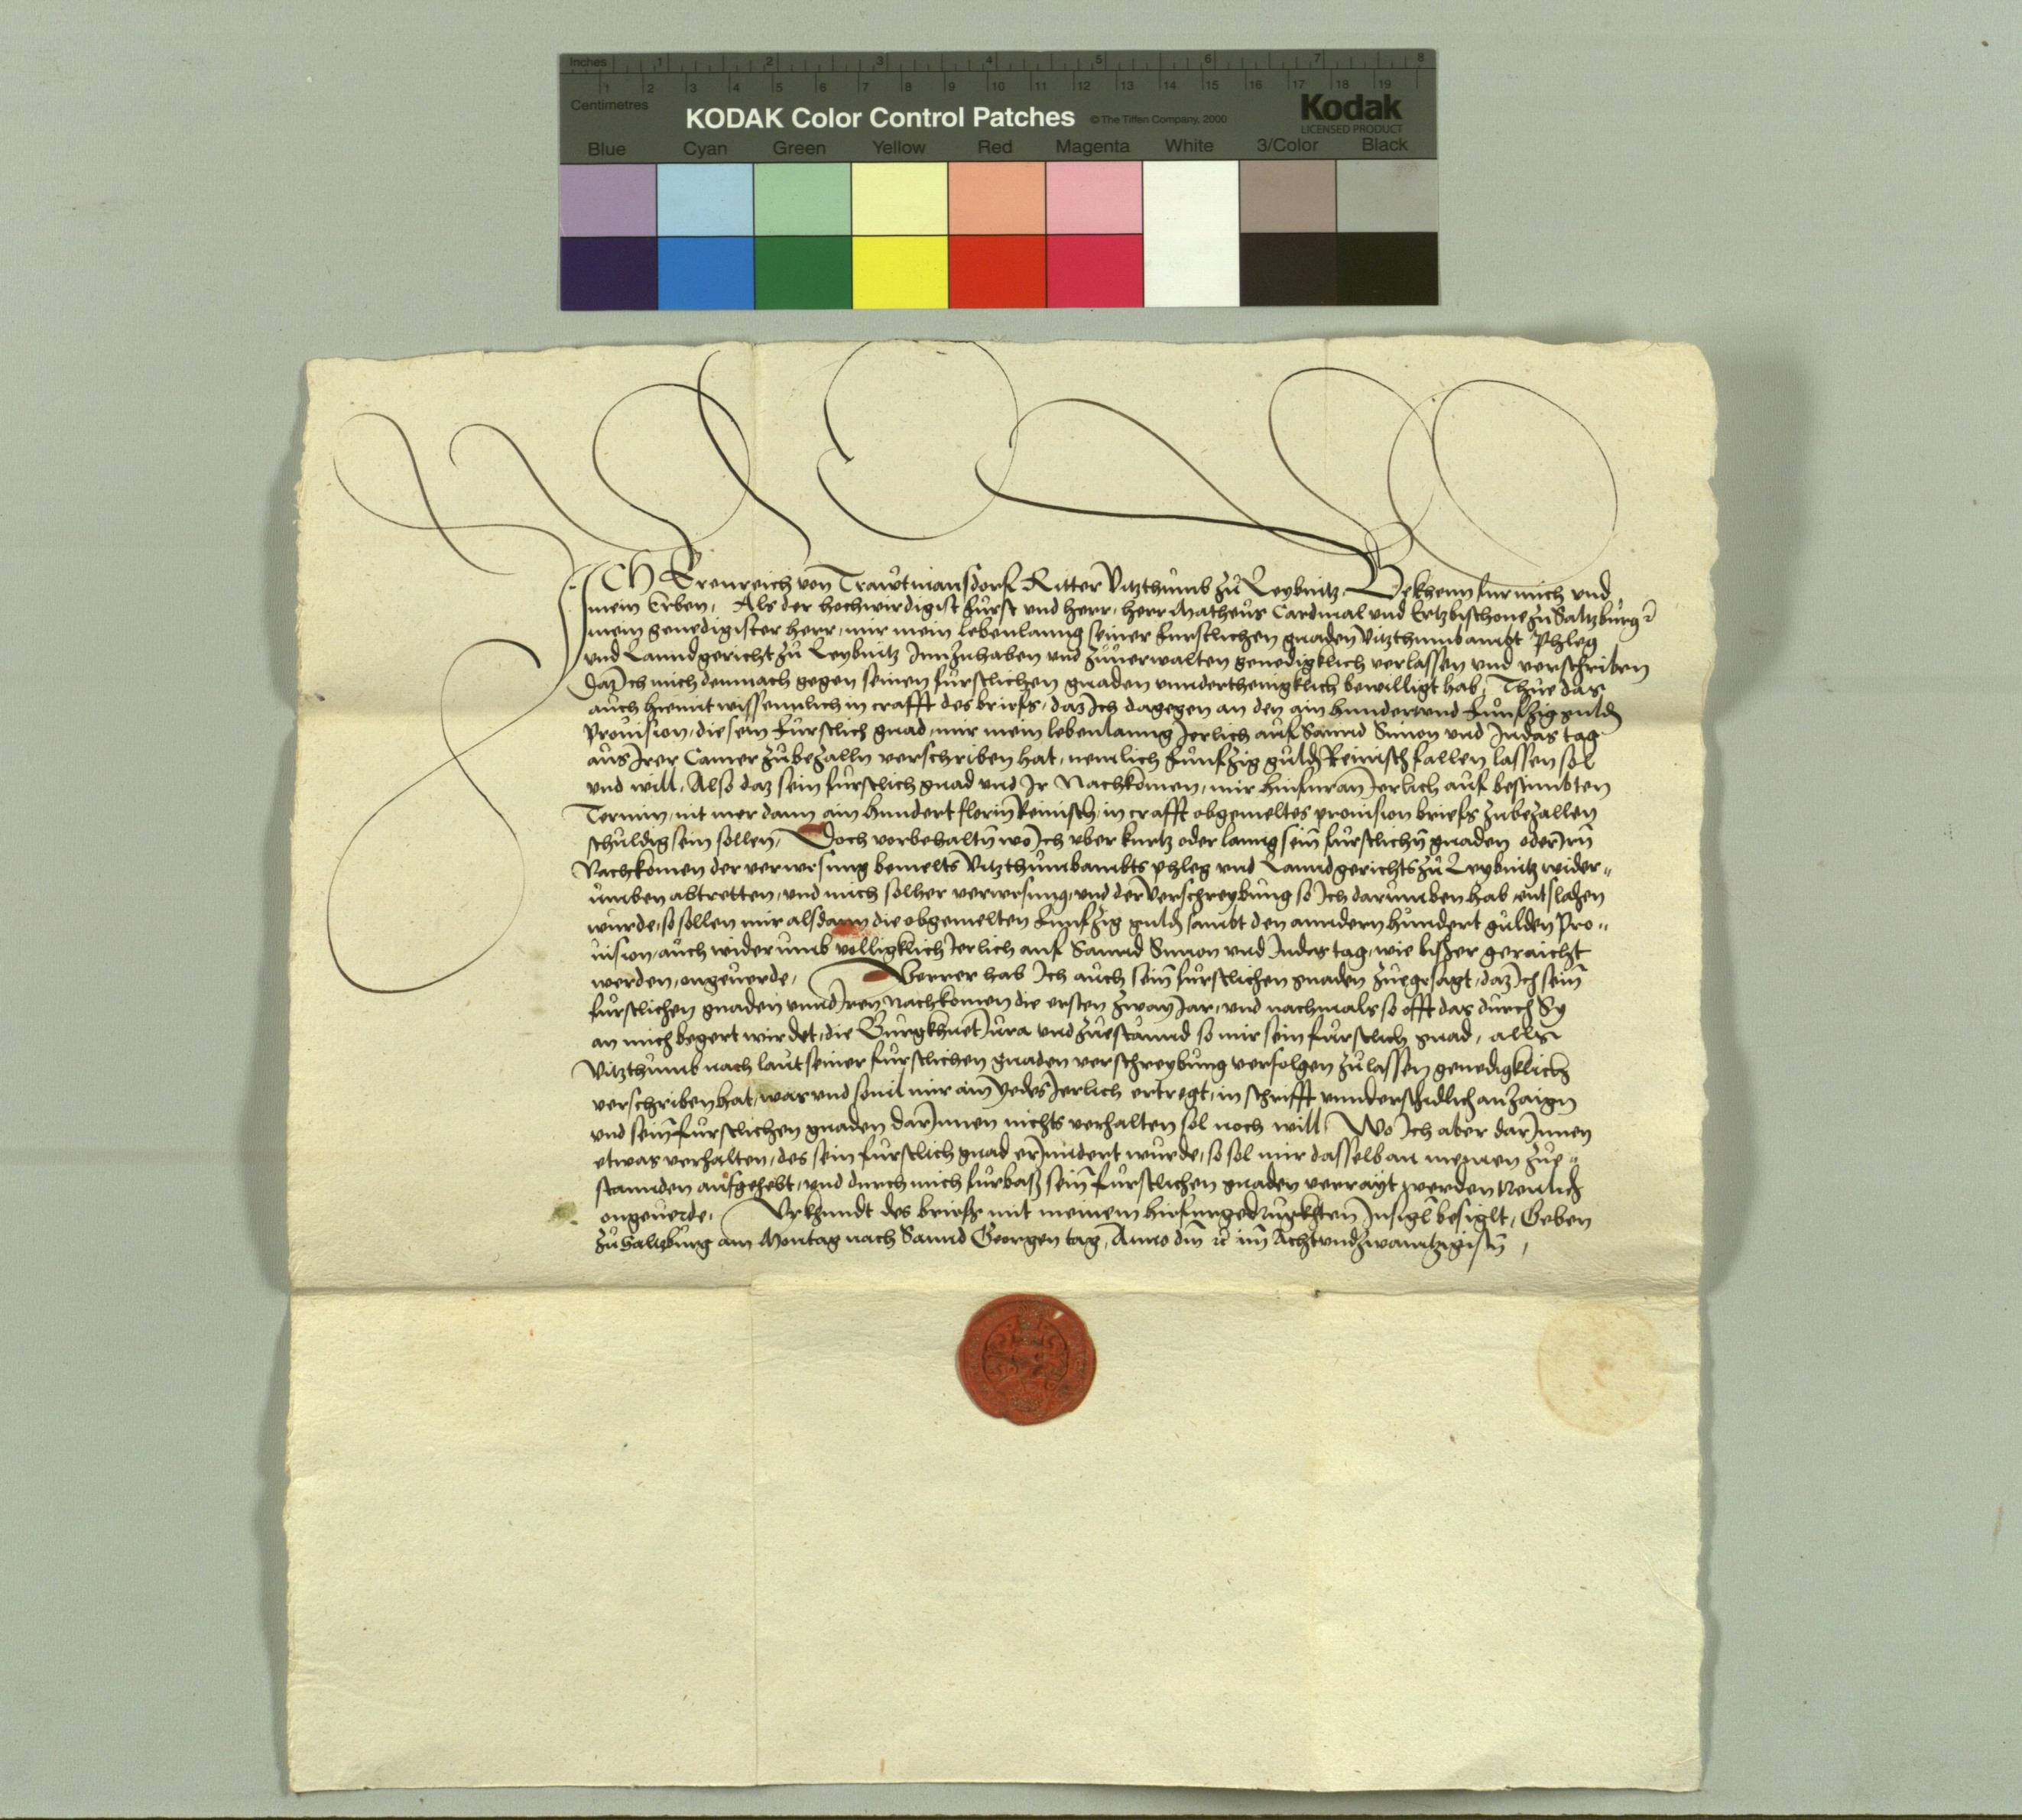 Inches 1 2 3 4 5 6 7 8
1 2 3 4 5 6 7 8 9 10 11 12 13 14 15 16 17 18 19
Centimetres
KODAK Color Control Patches © The Tiffen Company, 2000 Kodak
LICENSED PRODUCT
Blue Cyan Green Yellow Red Magenta White 3/Color Black
ICH Erenreich von Trawtmansdorf Ritter Vitzthumb zu Leybnitz, Bekhenn fur mich und
mein Erben, Als der hochwirdigist furst und herr, herr Matheus Cardinal und Ertzbischove zu Saltzburg ꝛc
mein genedigister herr, mir mein lebenlanng seiner furstlichen gnaden Vitzthumbambt Phleg
und Lanndgericht zu Leybnitz Innzuhaben und zuverwalten genedigklich verlassen und verschriben
daz Ich mich demnach gegen seinen furstlichen gnaden unnderthenigklich bewilligt hab, Thue das
auch hiemit wissenntlich in crafft des briefs, daz Ich dagegen an den ain hundert und funfzig guldn
Provision, die sein furstlich gnad, mir mein lebenlanng Jerlich auf Sannd Simon und Judas tag
aus Irer Camer zubezalln verschriben hat, nemlich funfzig guldn Reinisch fallen lassen sol
und will, Also daz sein furstlich gnad und Ir Nachkomen, mir hinfuran Jerlich auf bestimbten
Termin, nit mer dann ain hundert florin Reinisch, in crafft obgemeltes provision briefs zubezallen
schuldig sein sollen, Doch vorbehaltn wo Ich uber kurtz oder lanng sein furstlichn gnaden oder Irn
Nachkomen der verwesung bemelts Vitzthumbambts phleg und Lanndgerichts zu Leybnitz wider„
umben abtretten, und mich solher verwesung, und der Verschreybung so Ich darumben hab entsladen
wurde, so sollen mir alsdann die obgemelten funfzig guldn sambt den anndern hundert gulden Pro„
vision, auch widerumb volligklich Jerlich auf Sannd Simon und Judas tag, wie bisher geraicht
werden, ongeverde, Verrer hab Ich auch sein furstlichen gnaden zuegesagt, daz Ich sein
furstlichen gnaden unnd Iren Nachkomen die ersten zway Jar, und nachmals so offt das durch Sy
an mich begert wirdet, die Burgkhuet Jura und zuestannd so mir sein furstlich gnad, alls
Vitzthumb nach laut seiner furstlichen gnaden verschreybung verfolgen zulassen genedigklich
verschriben hat, was und sovil mir ain yedes Jerlich ertregt, in schrifft unnderschidlich anzaign
und sein furstlichen gnaden darInnen nichts verhalten sol noch will, Wo Ich aber darInnen
etwas verhalten, des sein furstlich gnad erInndert wurde, so sol mir dasselb an meinen zue„
stannden aufgehebt, und durch mich furbaß sein furstlichen gnaden verrayt werden
ongeverde, Urkhundt des briefs mit meinem hiefurgedruckhten Insigl besiglt, Geben
zu Saltzburg am Montag nach Sannd Georgen tag, Anno dm ꝛc im Achtundzwanntzigistn,